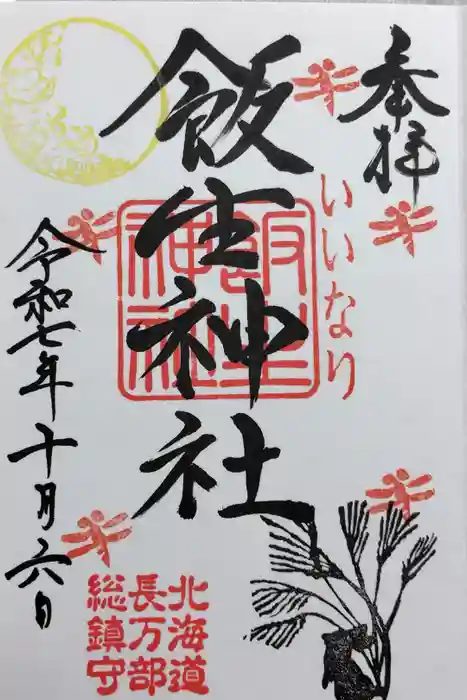 奉拝
いいなり
飯生神社
飯生神社
令和七年十月六日
北海道
長万部
総鎮守